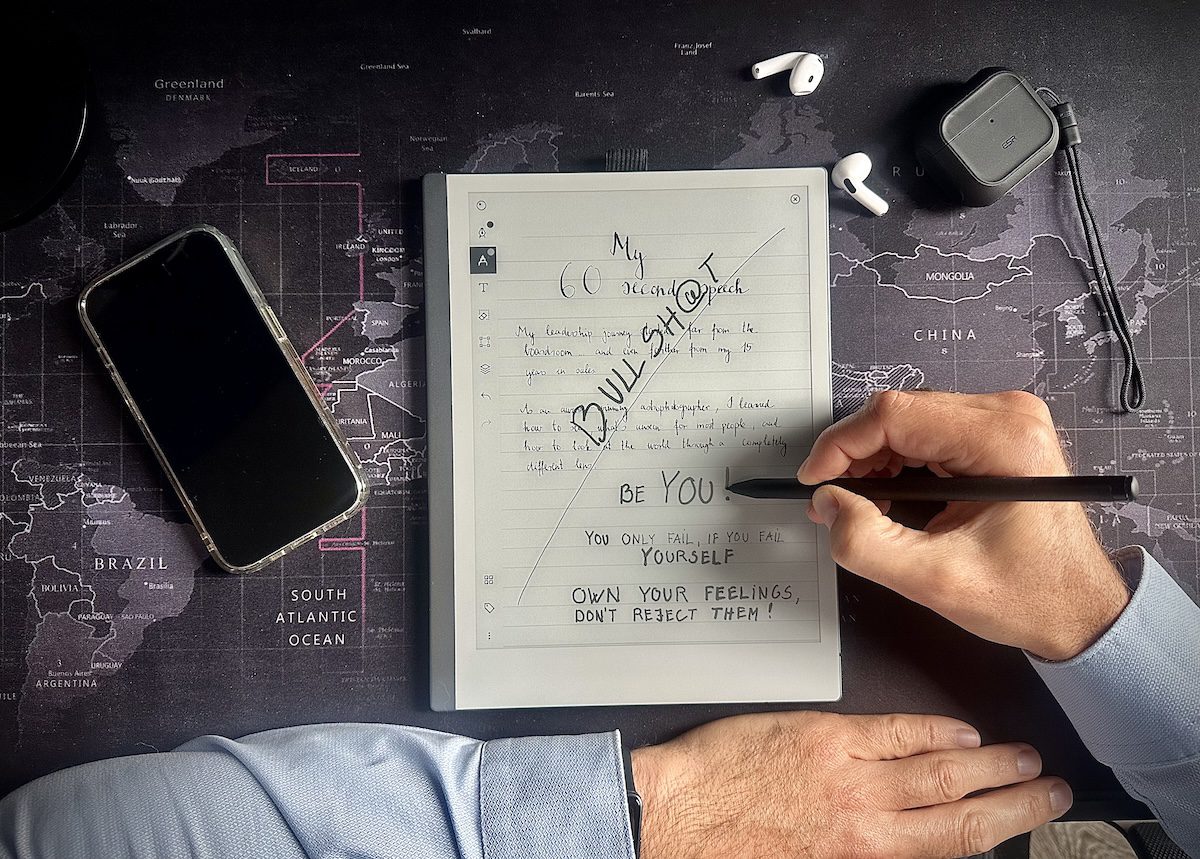 Svalbard
Franz Josef
Land
Greenland Sea
Greenland
DENMARK
Barents Sea
Norwegian
Sea
Nuuk (Godthab)
ICELAND
Labrador
Sea
IRELAND
UNITED
KINGDOM
LONDON
SPAIN
Casablanca
MOROCCO
ALGERIA
MALI
VENEZUELA
BRAZIL
Brasilia
BOLIVIA
PARAGUAY
SAO PAULO
URUGUAY
Buenos Aires
ARGENTINA
SOUTH
ATLANTIC
OCEAN
ESR
MONGOLIA
Beijing
CHINA
Shanghai
My
60 second speech
BULLSH@T
My leadership journey far from the
boardroom... and even further from my 15
years in sales
As an award winning astrophotographer, I learned
how to see what's unseen for most people, and
how to look at the world through a completely
different lens
BE YOU!
YOU ONLY FAIL, IF YOU FAIL
YOURSELF
OWN YOUR FEELINGS,
DON'T REJECT THEM!